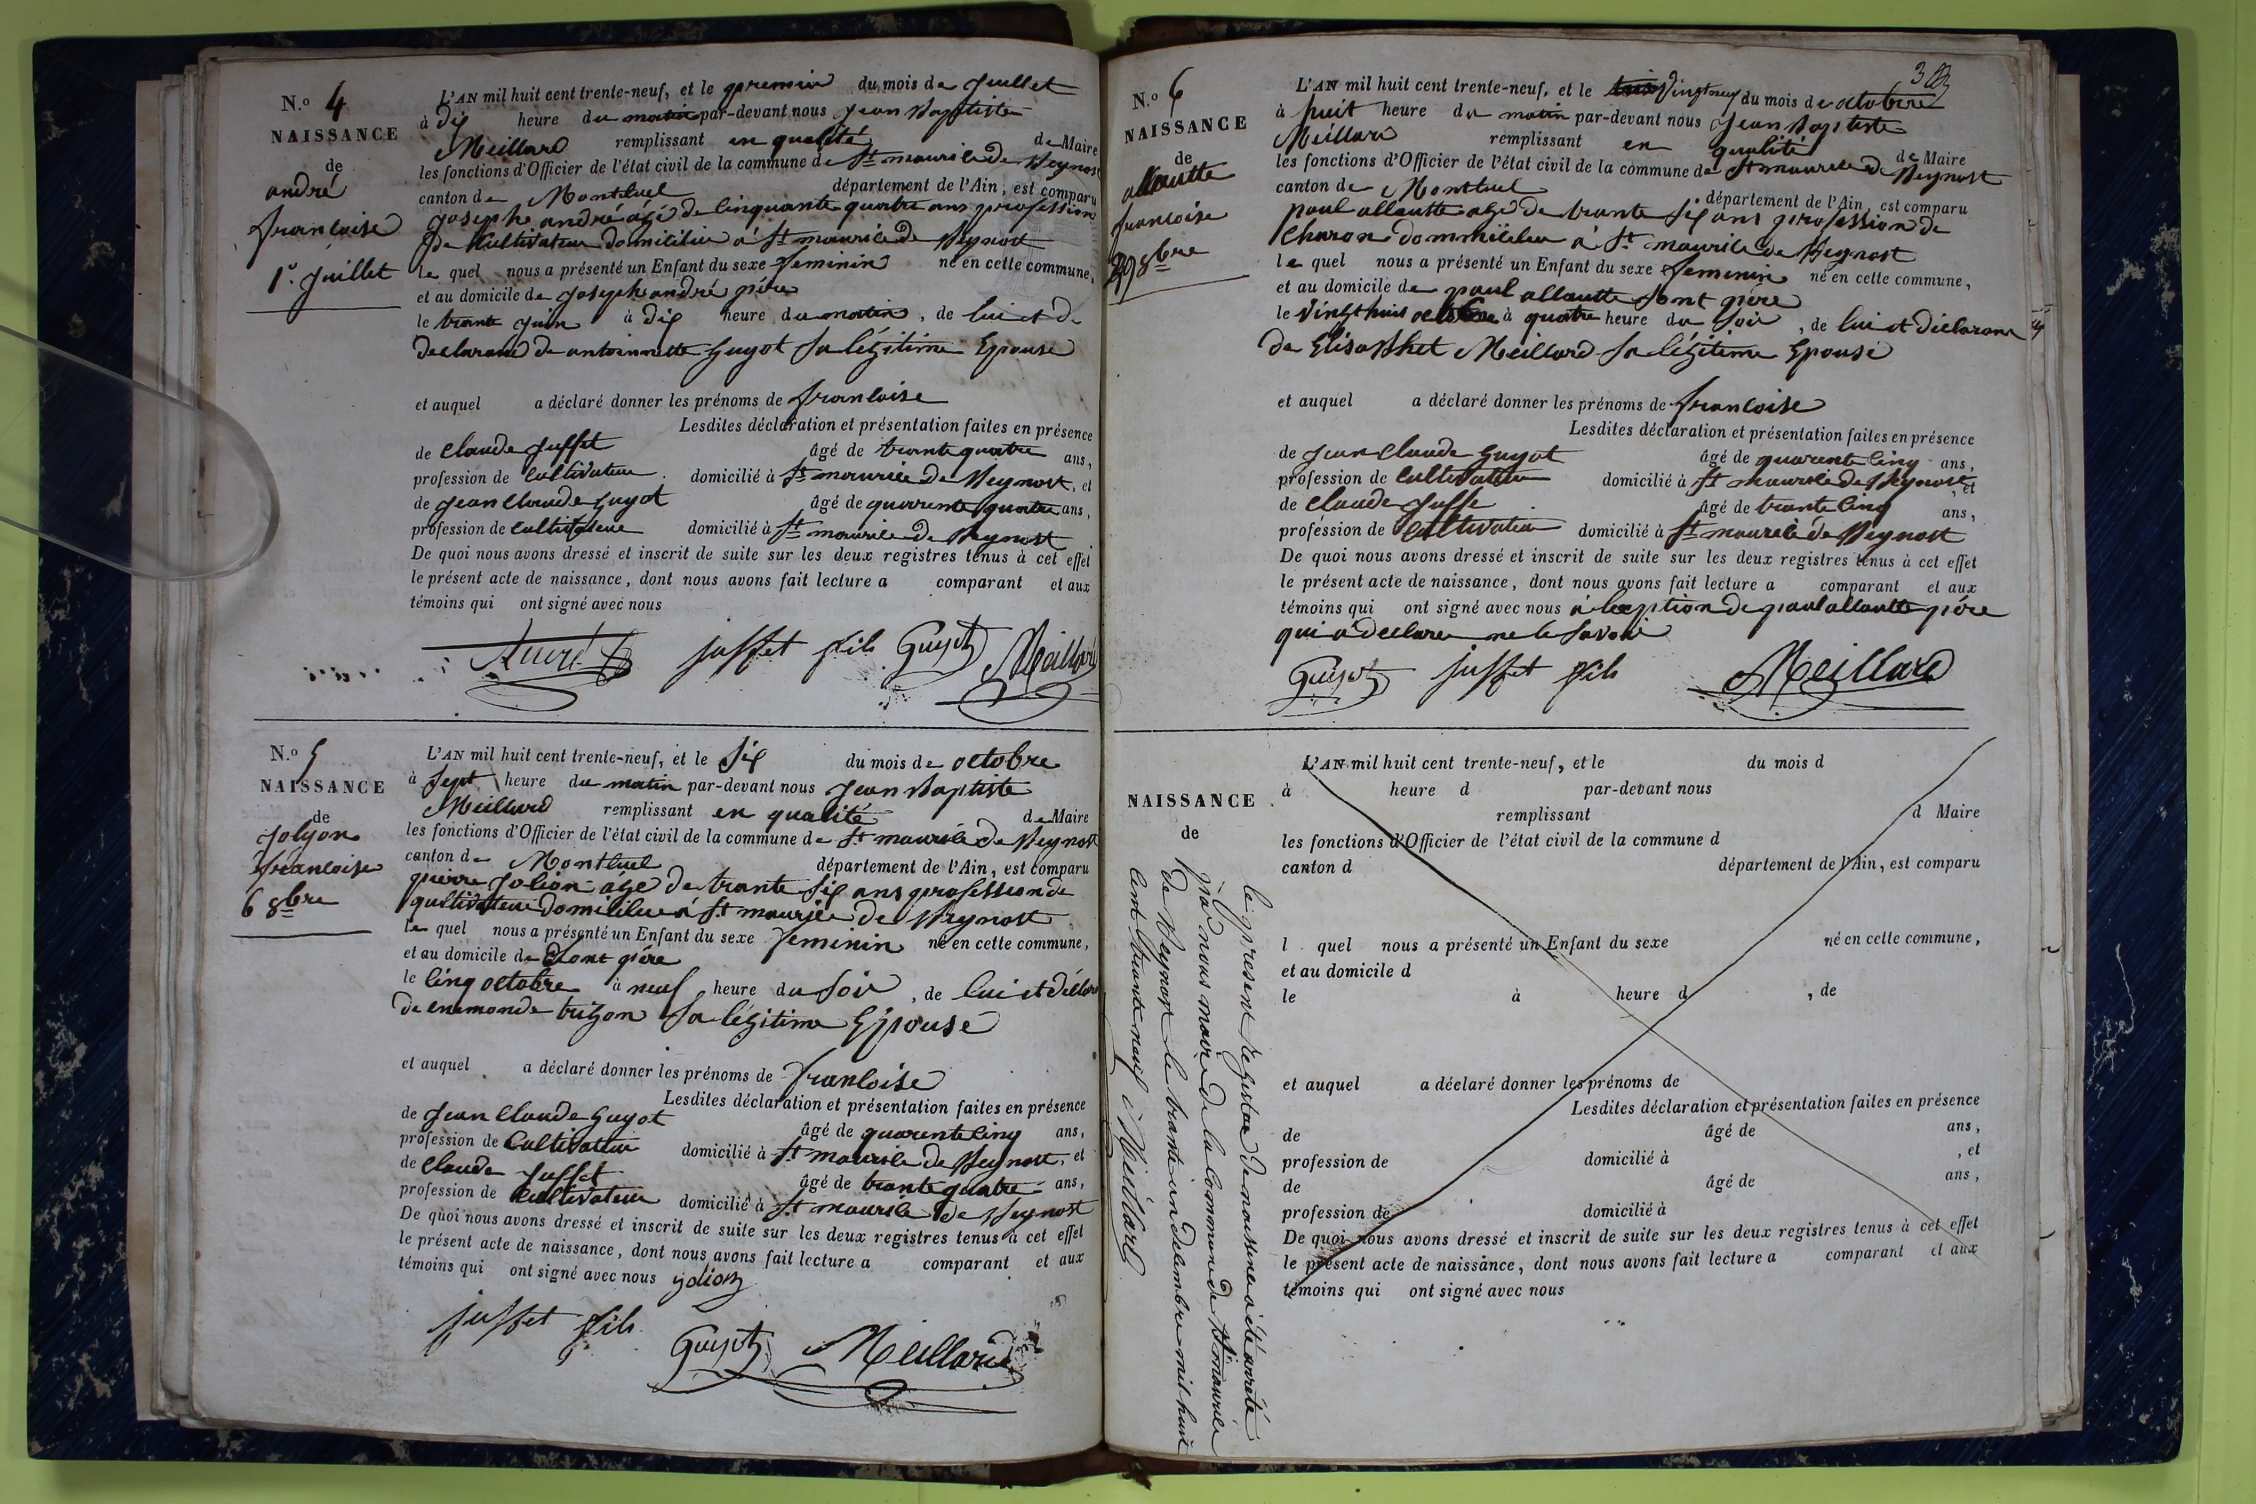 N.o 4
NAISSANCE
de
andré
françoise
1.r Juillet
L'AN mil huit cent trente-neuf, et le premier du mois de Juillet
à dix heure du matin par-devant nous Jean Baptiste
Meillard remplissant en qualité de Maire
les fonctions d'Officier de l'état civil de la commune de St maurice de Beynost
canton de Montluel département de l'Ain, est comparu
Joseph andré agé de cinquante quatre ans profession
de Cultivateur domicilié à St maurice de Beynost
le quel nous a présenté un Enfant du sexe feminin né en cette commune,
et au domicile de Joseph andré père
le trante Juin à dix heure du matin, de lui et de
declarand de antoinnette Guyot sa légitime Epouse
et auquel a déclaré donner les prénoms de françoise
Lesdites déclaration et présentation faites en présence
de Claude Juffet âgé de trante quatre ans,
profession de Cultivateur domicilié à St maurice de Beynost, et
de Jean Claude Guyot âgé de quarente quatre ans,
profession de Cultivateur domicilié à St maurice de Beynost
De quoi nous avons dressé et inscrit de suite sur les deux registres tenus à cet effet
le présent acte de naissance, dont nous avons fait lecture a comparant et aux
témoins qui ont signé avec nous
André juffet fils Guyot Meillard
N.o 5
NAISSANCE
de
Jolyon
françoise
6 8bre
L'AN mil huit cent trente-neuf, et le Six du mois de octobre
à Sept heure du matin par-devant nous Jean Baptiste
Meillard remplissant en qualité de Maire
les fonctions d'Officier de l'état civil de la commune de St maurice de Beynost
canton de Montluel département de l'Ain, est comparu
pierre Jolion agé de trante Six ans profession de
Qultivateur domicilier à St maurice de Beynost
le quel nous a présenté un Enfant du sexe feminin né en cette commune,
et au domicile de Sont père
le Cinq octobre à neuf heure du Soir, de lui et déclar
de enemonde trizon Sa légitime Epouse
et auquel a déclaré donner les prénoms de françoise
Lesdites déclaration et présentation faites en présence
de Jean Claude Guyot âgé de quarente Cinq ans,
profession de Cultivateur domicilié à St maurice de Beynost, et
de Claude Juffet âgé de trante quatre ans,
profession de Cultivateur domicilié à St maurice de Beynost
De quoi nous avons dressé et inscrit de suite sur les deux registres tenus à cet effet
le présent acte de naissance, dont nous avons fait lecture a comparant et aux
témoins qui ont signé avec nous jolion
juffet fils Guyot Meillard
3
N.o 6
NAISSANCE
de
allautte
françoise
29 8bre
L'AN mil huit cent trente-neuf, et le vingt neuf du mois de octobre
à huit heure du matin par-devant nous Jean Baptiste
Meillard remplissant en qualité de Maire
les fonctions d'Officier de l'état civil de la commune de St maurice de Beynost
canton de Montluel département de l'Ain, est comparu
paul allautte agé de trante Six ans profession de
Charon dommicilier à St maurice de Beynost
le quel nous a présenté un Enfant du sexe feminin né en cette commune,
et au domicile de paul allautte Sont père
le Vingt huit octobre à quatre heure du Soir, de lui et déclarant
de Elisabhet Meillard Sa légitime Epouse
et auquel a déclaré donner les prénoms de françoise
Lesdites déclaration et présentation faites en présence
de Jean Claude Guyot âgé de quarente Cinq ans,
profession de Cultivateur domicilié à St maurice de Beynost, et
de Claude Juffe âgé de trante Cinq ans,
profession de Cultivateur domicilié à St maurice de Beynost
De quoi nous avons dressé et inscrit de suite sur les deux registres tenus à cet effet
le présent acte de naissance, dont nous avons fait lecture a comparant et aux
témoins qui ont signé avec nous à lexception de paul allautte père
qui a declarer ne le Savoir
Guyot juffet fils Meillard
NAISSANCE
de
le present registre de naissance a été arrété
par nous maire de la Commune de St maurice
de Beynost le trante un decembre mil huit
Cent trante neuf Meillard
L'AN mil huit cent trente-neuf, et le du mois d
à heure d par-devant nous
remplissant d Maire
les fonctions d'Officier de l'état civil de la commune d
canton d département de l'Ain, est comparu
l quel nous a présenté un Enfant du sexe né en cette commune,
et au domicile d
le à heure d , de
et auquel a déclaré donner les prénoms de
Lesdites déclaration et présentation faites en présence
de âgé de ans,
profession de domicilié à , et
de âgé de ans,
profession de domicilié à
De quoi nous avons dressé et inscrit de suite sur les deux registres tenus à cet effet
le présent acte de naissance, dont nous avons fait lecture a comparant et aux
témoins qui ont signé avec nous